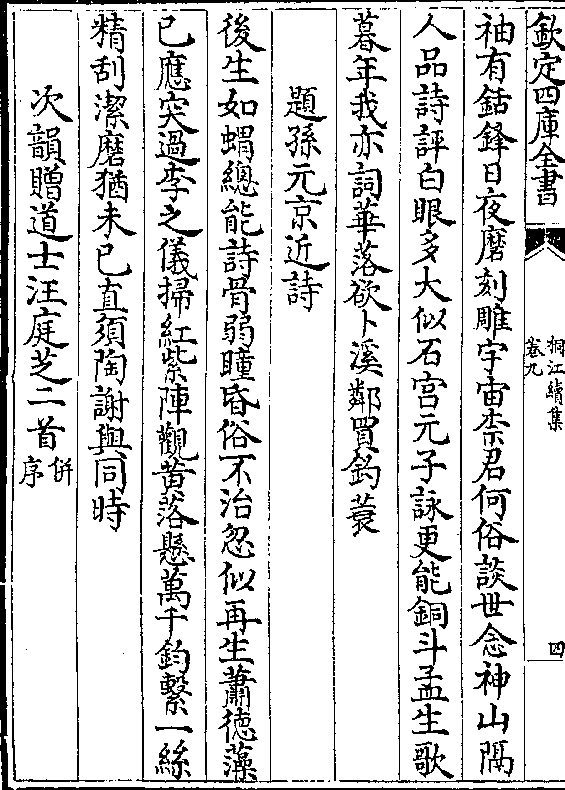 欽定四庫全書
桐江續集
卷九
四
袖有銛鋒日夜磨刻雕宇宙柰君何俗談世念神山隔
人品詩評白眼多大似石宫元子詠更能銅斗孟生歌
暮年我亦詞華落欲卜溪鄰買釣蓑
題孫元京近詩
後生如蝟總能詩骨弱瞳昏俗不治忽似再生蕭德藻
已應突過李之儀掃紅紫陣觀黄落懸萬千鈞繫一絲
精刮潔磨猶未已直須陶謝與同時
次韻贈道士汪庭芝二首併
序